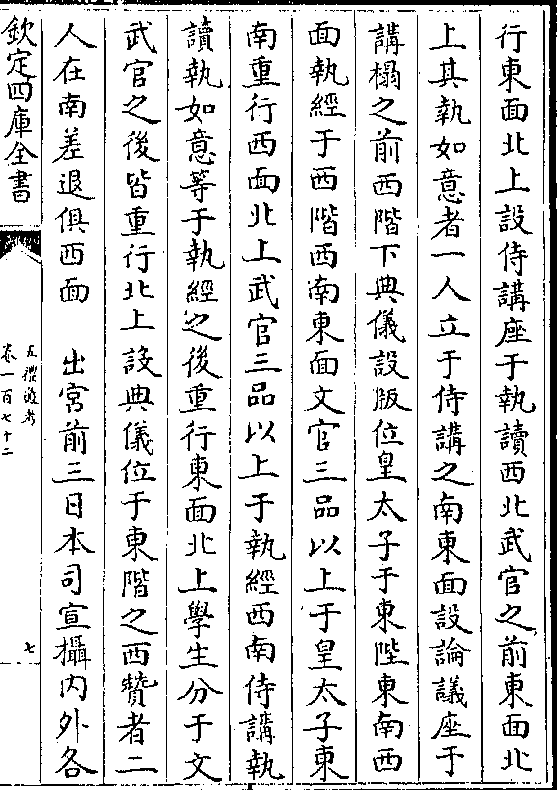 行東面北上設侍講座于執讀西北武官之前東面北
上其執如意者一人立于侍講之南東面設論議座于
講榻之前西階下典儀設版位皇太子于東陛東南西
面執經于西階西南東面文官三品以上于皇太子東
南重行西面北上武官三品以上于執經西南侍講執
讀執如意等于執經之後重行東面北上學生分于文
武官之後皆重行北上設典儀位于東階之西贊者二
人在南差退俱西面　出宮前三日本司宣攝内外各
欽定四庫全書
五禮通考
卷一百七十二
七